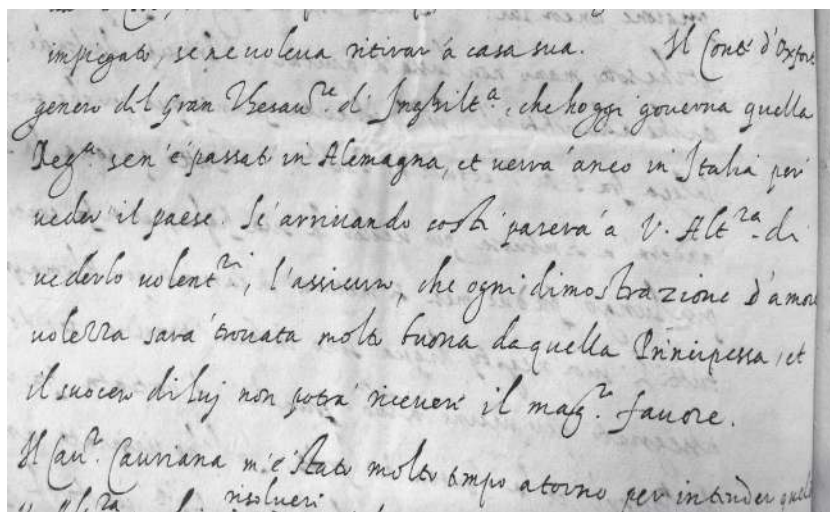 impiegato, se ne voleva ritirar à casa sua. Il Conte d'Oxfort
genero del Gran Thesau.re d'Inghilt.a, che hoggi governa quella
Reg.a sen'è passato in Alemagna, et verrà anco in Italia per
veder il paese. Se arrivando costì parerà à V. Alt.za di
vederlo volent.ri, l'assicuro, che ogni dimostrazione d'amore
volezza sarà trovata molto buona da quella Principessa, et
il suocero di luj non potrà ricevere il mag.r favore.
Il Cav.r Cauriana m'è stato molto tempo atorno per intender
risolveri